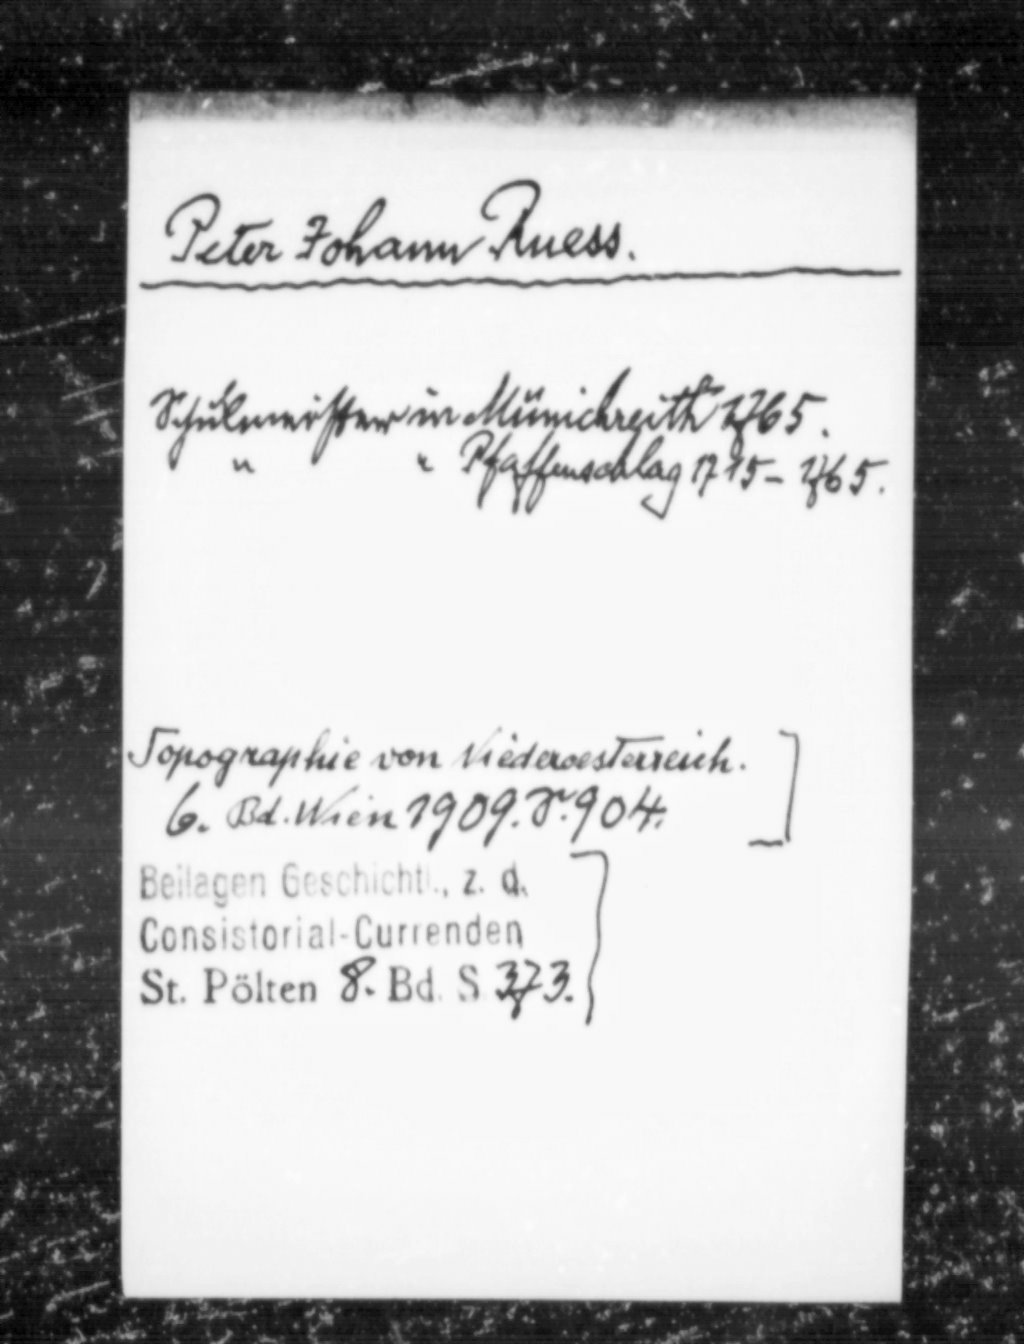 Peter Johann Ruess.
Schulmeister in Münichreith 1765.
" " Pfaffenschlag 1715 - 1765.
Topographie von Niederoesterreich.
6. Bd. Wien 1909. S. 904.
Beilagen Geschichtl., z. d.
Consistorial-Currenden
St. Pölten 8. Bd. S. 373.